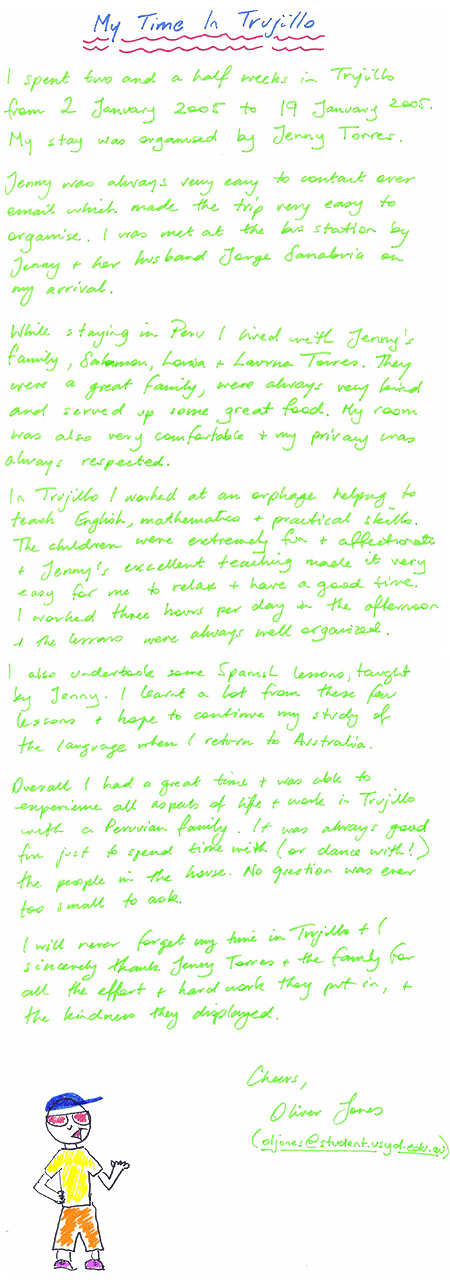 My Time In Trujillo
I spent two and a half weeks in Trujillo
from 2 January 2005 to 19 January 2005.
My stay was organised by Jenny Torres.
Jenny was always very easy to contact over
email which made the trip very easy to
organise. I was met at the bus station by
Jenny + her husband Jorge Sanabria on
my arrival.
While staying in Peru I lived with Jenny's
family, Salaman, Louisa + Lavrna Torres. They
were a great family, were always very kind
and served up some great food. My room
was also very comfortable + my privacy was
always respected.
In Trujillo I worked at an orphage helping to
teach English, mathematics + practical skills.
The children were extremely fun + affectionate
+ Jenny's excellent teaching made it very
easy for me to relax + have a good time.
I worked three hours per day in the afternoon
+ the lessons were always well organized.
I also undertook some Spanish lessons, taught
by Jenny. I learnt a lot from these few
lessons + hope to continue my study of
the language when I return to Australia.
Overall I had a great time + was able to
experience all aspects of life + work in Trujillo
with a Peruvian family. It was always good
fun just to spend time with (or dance with!)
the people in the house. No question was ever
too small to ask.
I will never forget my time in Trujillo + I
sincerely thank Jenny Torres + the family for
all the effort + hard work they put in, +
the kindness they displayed.
Cheers,
Oliver Jones
(oljones@student.usyd.edu.au)